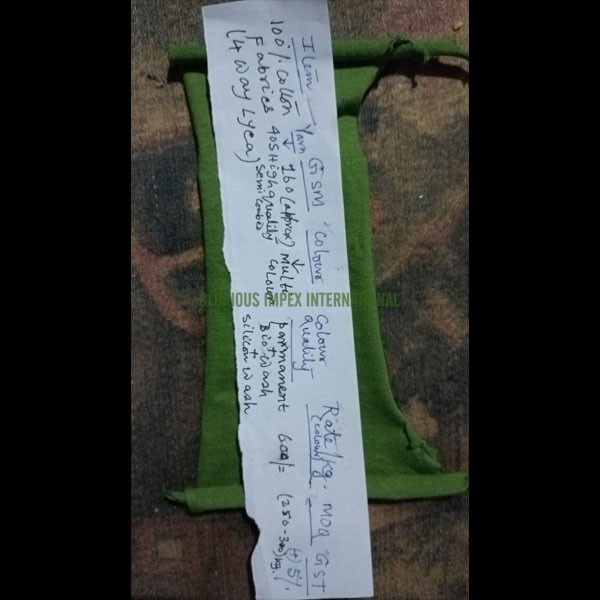 Item Yarn GSM Colour Colour Quality Rate/kg. (colour) MOQ GST
100% Cotton 160 (approx) Multi parmanent 600/= (250-300)kg. (+) 5%
Fabrics 40S High quality colour Bio wash
(4 way Lyca) Semi Combed + Silicon wash
IOUS IMPEX INTERNATIONAL